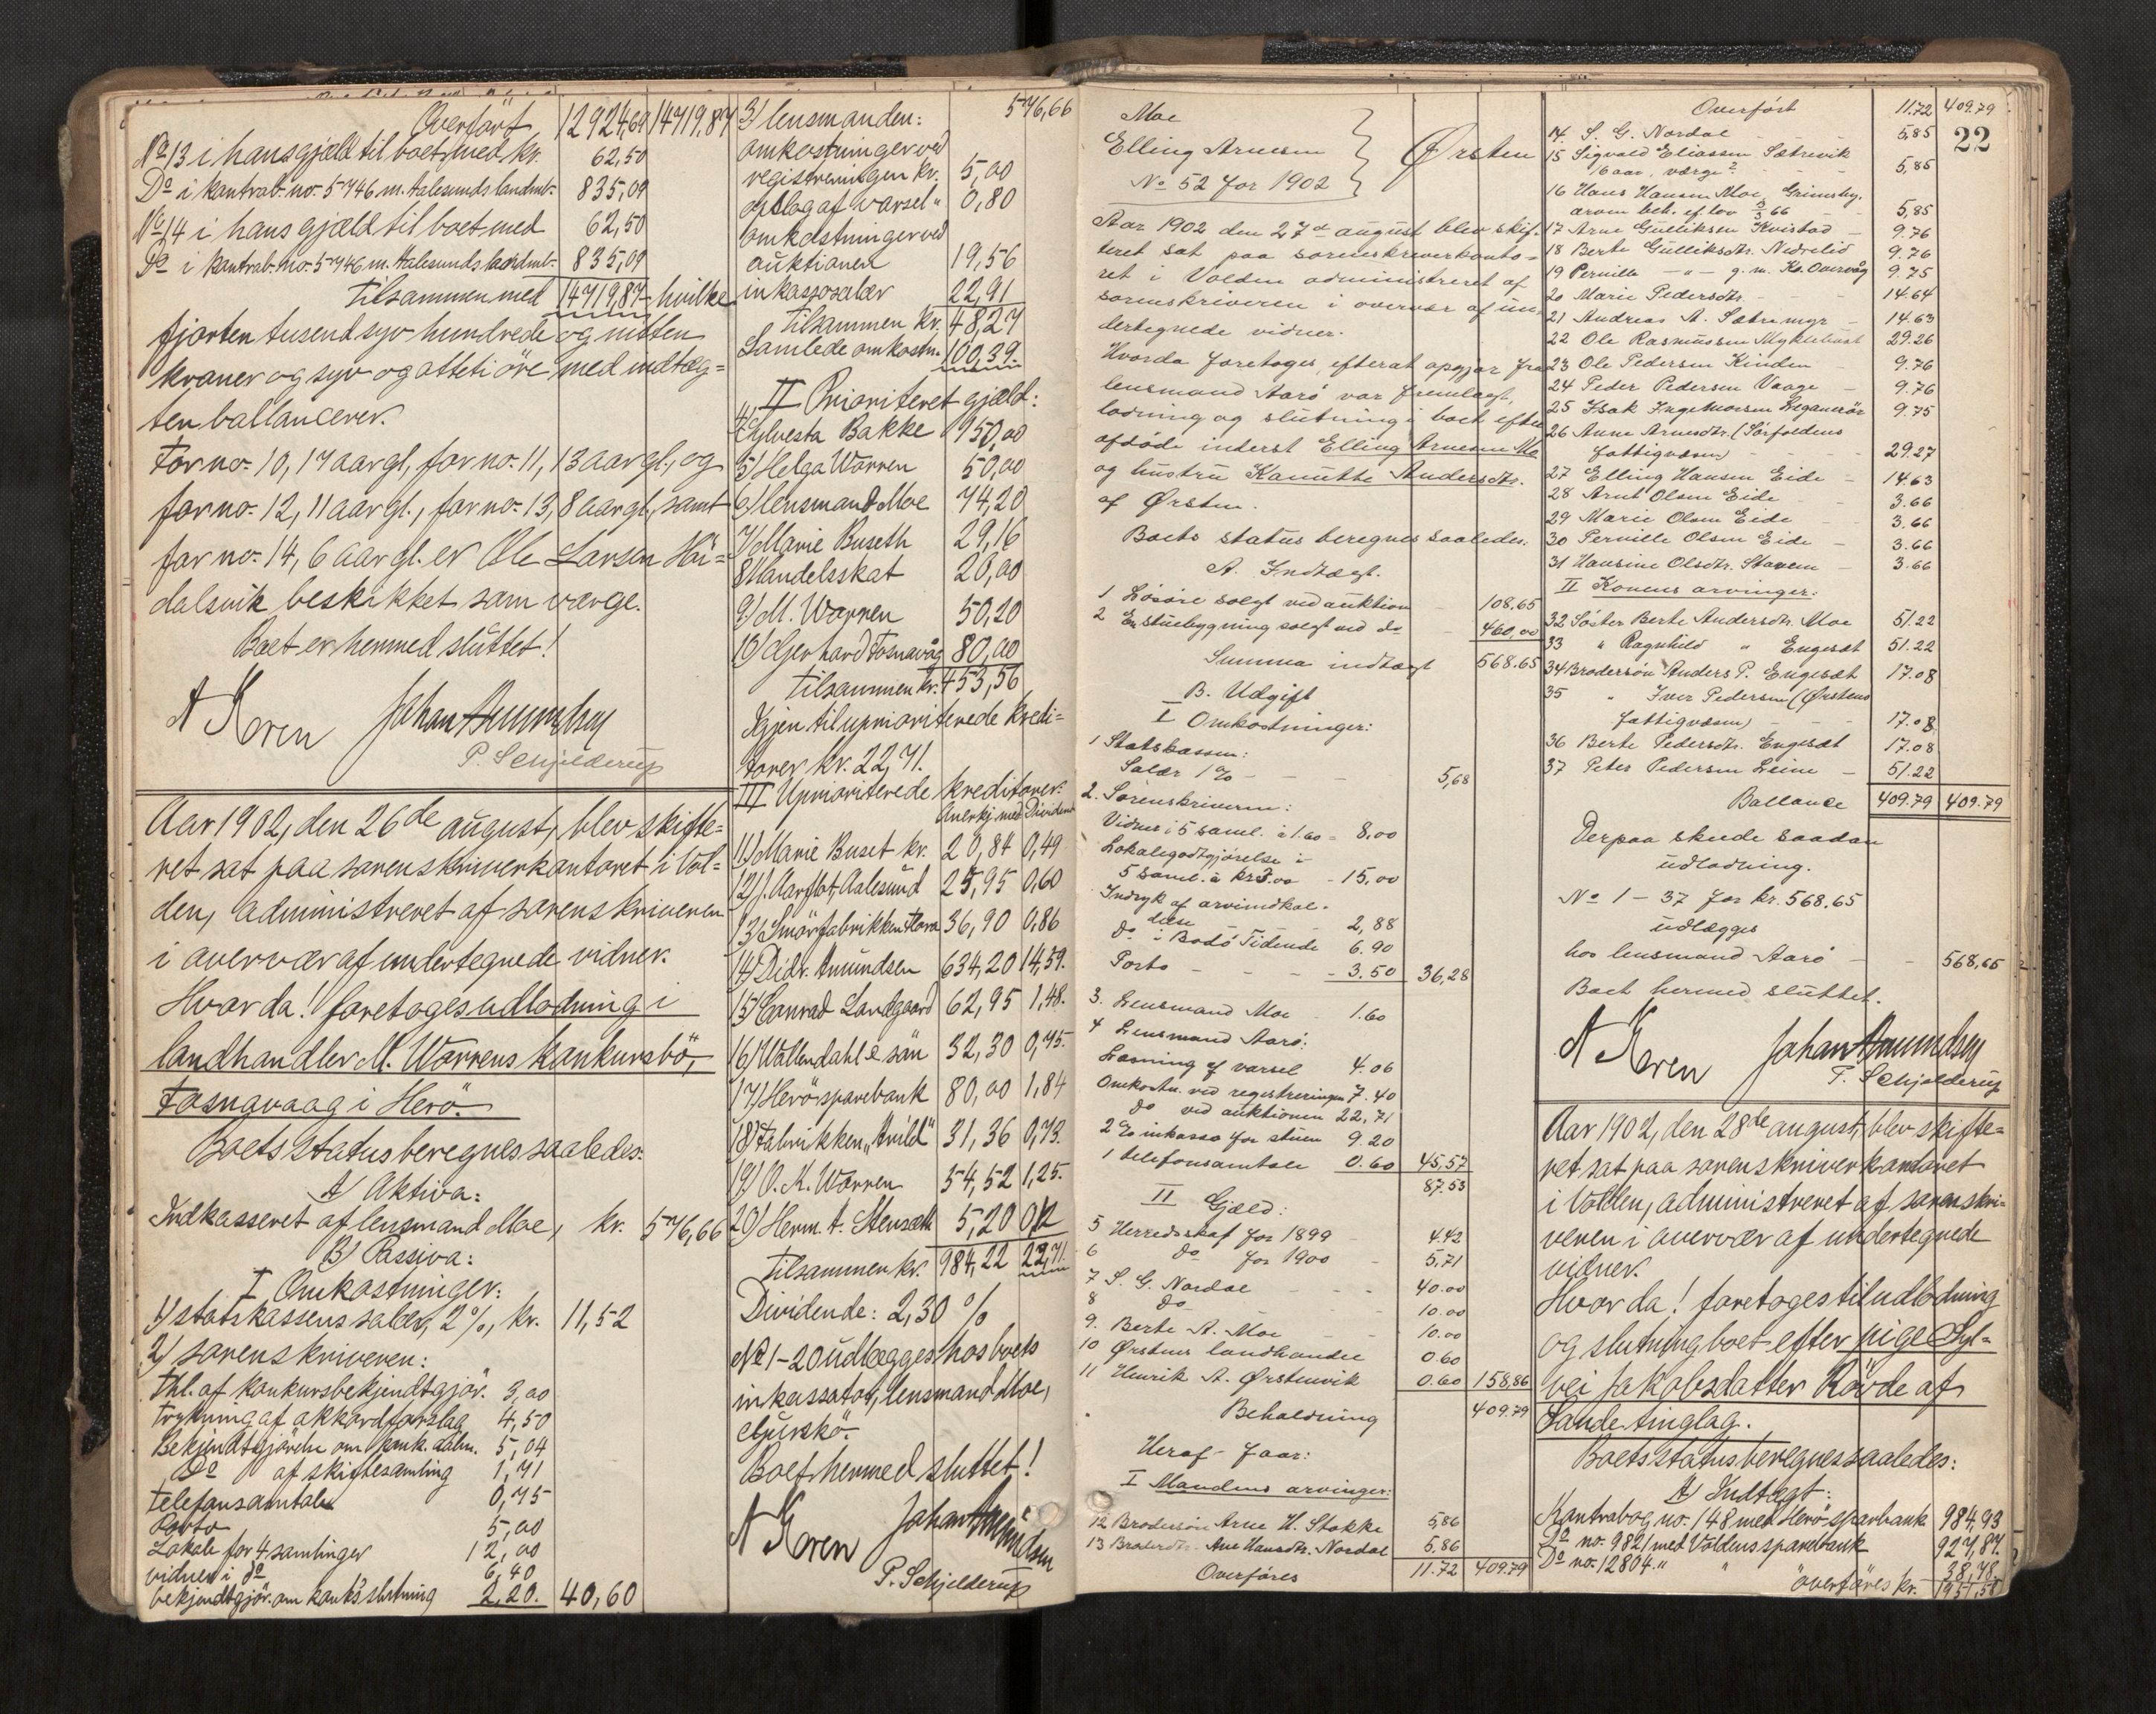 Overført 12924,69 14719,87
No 13 i hans gjæld til boet med kr. 62,50
Do i kontrab. no. 5746 m. Aalesunds landmb. 835,09
No 14 i hans gjæld til boet med 62,50
Do i kontrab. no. 5746 m. Aalesunds landmb. 835,09
Tilsammen med 14719,87 hvilke
fjorten tusend syv hundrede og nitten
kroner og syv og otteti öre med indtæg=
ten ballancerer.
For no. 10, 17 aar gl., for no. 11, 13 aar gl., og
for no. 12, 11 aar gl., for no. 13, 8 aar gl., samt
for no. 14, 6 aar gl. er Ole Larsen Höi=
dalsvik beskikket som værge.
Boet er hermed sluttet!
A Koren Johan Amundsen
P. Schjelderup
Aar 1902, den 26de august, blev skifte=
ret sat paa sorenskriverkontoret i Vol=
den, administreret af sorenskriveren
i overvær af undertegnede vidner.
Hvor da! foretoges udlodning i
landhandler M. Warrens konkursbö,
Fosnavaag i Herö.
Boets status beregnes saaledes:
A) Aktiva:
Indkasseret af lensmand Moe, kr. 576,66
B) Passiva:
I Omkostninger:
1) statskassens salær, 2%, kr. 11,52
2) sorenskriveren:
Thl. af konkursbekjendtgjör. 3,00
Trykning af akkordforslag 4,50
Bekjendtgjörelse om konk. 5,04
Do af skiftesamling 1,71
Telefonsamtale 0,75
Porto 5,00
Lokale for 4 samlinger 12,00
vidner i do 6,40
bekjendtgjör. om konk's slutning 2,20. 40,60
3) lensmanden: 576,66
omkostninger ved
registreringen kr. 5,00
opslag af varsel " 0,80
omkostninger ved
auktionen 19,56
inkassosalær 22,91
Tilsammen kr. 48,27
Samlede omkostn. 100,39.
II Prioriteret gjæld:
4) Sylvesta Bakke 150,00
5) Helga Warren 50,00
6) lensmand Moe 74,20
7) Marie Buseth 29,16
8) Handelsskat 20,00
9) M. Warren 50,20
10) Gerhard Fosnavåg 80,00
Tilsammen kr. 453,56
Igjen til uprioriterede kredi=
torer kr. 22,71.
III Uprioriterede kreditorer:
Anerkj. med Dividende
11) Marie Buset kr. 20,84 0,49
12) J. Aarflot, Aalesund 25,95 0,60
13) Smörfabrikken Flora 36,90 0,86
14) Didr. Amundsen 634,20 14,59.
15) Conrad Landgaard 62,95 1,48.
16) Wallendahl & sön 32,30 0,75.
17) Herö sparebank 80,00 1,84
18) Fabrikken "Arild" 31,36 0,73.
19) O. K. Warren 54,52 1,25.
20) Herm. A. Stensæth 5,20 0,12
Tilsammen kr. 984,22 22,71
Dividende: 2,30 %
No 1-20 udlægges hos boets
inkassator, lensmand Moe,
Gurskö.
Boet hermed sluttet!
A Koren Johan Amundsen
P. Schjelderup
Moe
Elling Arnesen
No 52 for 1902
Ørsten
Aar 1902 den 27de august blev skif-
teret sat paa sorenskriverkonto=
ret i Volden administreret af
sorenskriveren i overvær af un
dertegnede vidner.
Hvorda foretoges, efterat opgjør fra
lensmand Aarö var fremlagt,
lodning og slutning i boet efter
afdöde inderst Elling Arnesen Mo
og hustru Kanutte Andersdtr.
af Ørsten.
Boets status beregnes saaledes.
A. Indtægt.
1 Løsöre solgt ved auktion 108,65
2 En stuebygning solgt ved do 460,00
Summa indtægt 568.65
B. Udgift
I Omkostninger:
1 Statskassen:
Salær 1% - - - 5,68
2. Sorenskriveren:
Vidner i 5 saml. à 1.60 = 8,00
Lokalegodtgjørelse i
5 saml. à kr 3.00 - 15,00
Indryk af arvindkal-
delse 2,88
do i Bodö Tidende 6.90
Porto - - - 3.50 36,28
3. Lensmand Moe - 1.60
4 Lensmand Aarö:
Læsning af varsel 4.06
Omkostn. ved registreringen 7.40
do ved auktionen 22,71
2% inkasso for stuen 9.20
1 telefonsamtale 0.60 45,57
87.53
II Gjæld:
5 Herredsskat for 1899 4.42
6 do for 1900 - 5,71
7 S. G. Nordal - - - 40.00
8 do 10.00
9. Berte A. Moe - - 10.00
10 Ørstens landhandel 0.60
11 Henrik A. Ørstenvik 0.60 158,86
Beholdning 409.79
Heraf faar:
I Mandens arvinger:
12 Brodersön Arne H. Stokke 5,86
13 Broderdtr. Ane Hansdtr. Nordal 5.86
Overføres 11.72 409.79
Overført 11.72 409.79
22
14. S. G. Nordal - - - 5,85
15 Sigvald Eliassen Sætrevik
16 aar, værge? 5,85
16 Hans Hansen Moe, Grimsby.
arven beh. ef. lov 3/3 66 5,85
17 Arne Gulliksen Kvistad - 9.76
18 Berte Gulliksdtr. Nedrelid 9.76
19 Pernille - " - g. m. Ks. Overvåg 9.75
20 Marie Pedersdtr. - - - 14.64
21 Andreas A. Sætremyr - 14.63
22 Ole Rasmussen Myklebust 29.26
23 Ole Pedersen Kinden 9.76
24 Peder Pedersen Vaage - 9.76
25 Isak Ingebrigtsen Leganeör 9.75
26 Anne Arnesdtr. (Sörfoldens
fattigvæsen) - - - 29.27
27 Elling Hansen Eide - 14.63
28 Arnt Olsen Eide - 3.66
29 Marie Olsen Eide 3.66
30 Pernille Olsen Eide - 3.66
31 Hansine Olsdtr. Stavem - 3.66
II Konens arvinger:
32 Søster Berte Andersdtr. Moe 51.22
33 " Ragnhild " Engesæt 51.22
34 Brodersön Anders P. Engesæt 17.08
35 " Iver Pedersen (Ørstens
fattigvæsen) - - - 17.08
36 Berte Pedersdtr. Engesæt 17.08
37 Peter Pedersen Leine - 51.22
Ballance 409.79 409.79
Derpaa skede saadan
udlodning.
No 1 - 37 for kr. 568.65
udlægges
hos lensmand Aarö - - 568,65
Boet hermed sluttet.
A Koren Johan Amundsen
P. Schjelderup
Aar 1902, den 28de august, blev skifte=
ret sat paa sorenskriverkontoret
i Volden, administreret af sorenskri=
veren i overvær af undertegnede
vidner.
Hvor da! foretoges til udlodning
og slutning boet efter pige Syl=
vei Jakobsdatter Rövde af
Sande tinglag.
Boets status beregnes saaledes:
A) Indtægt:
Kontrabog no. 148 med Herö sparebank 984,93
Do no. 9821 med Voldens sparebank 927,87.
Do no. 12804 " " 38,78.
overføres kr. 1951,58